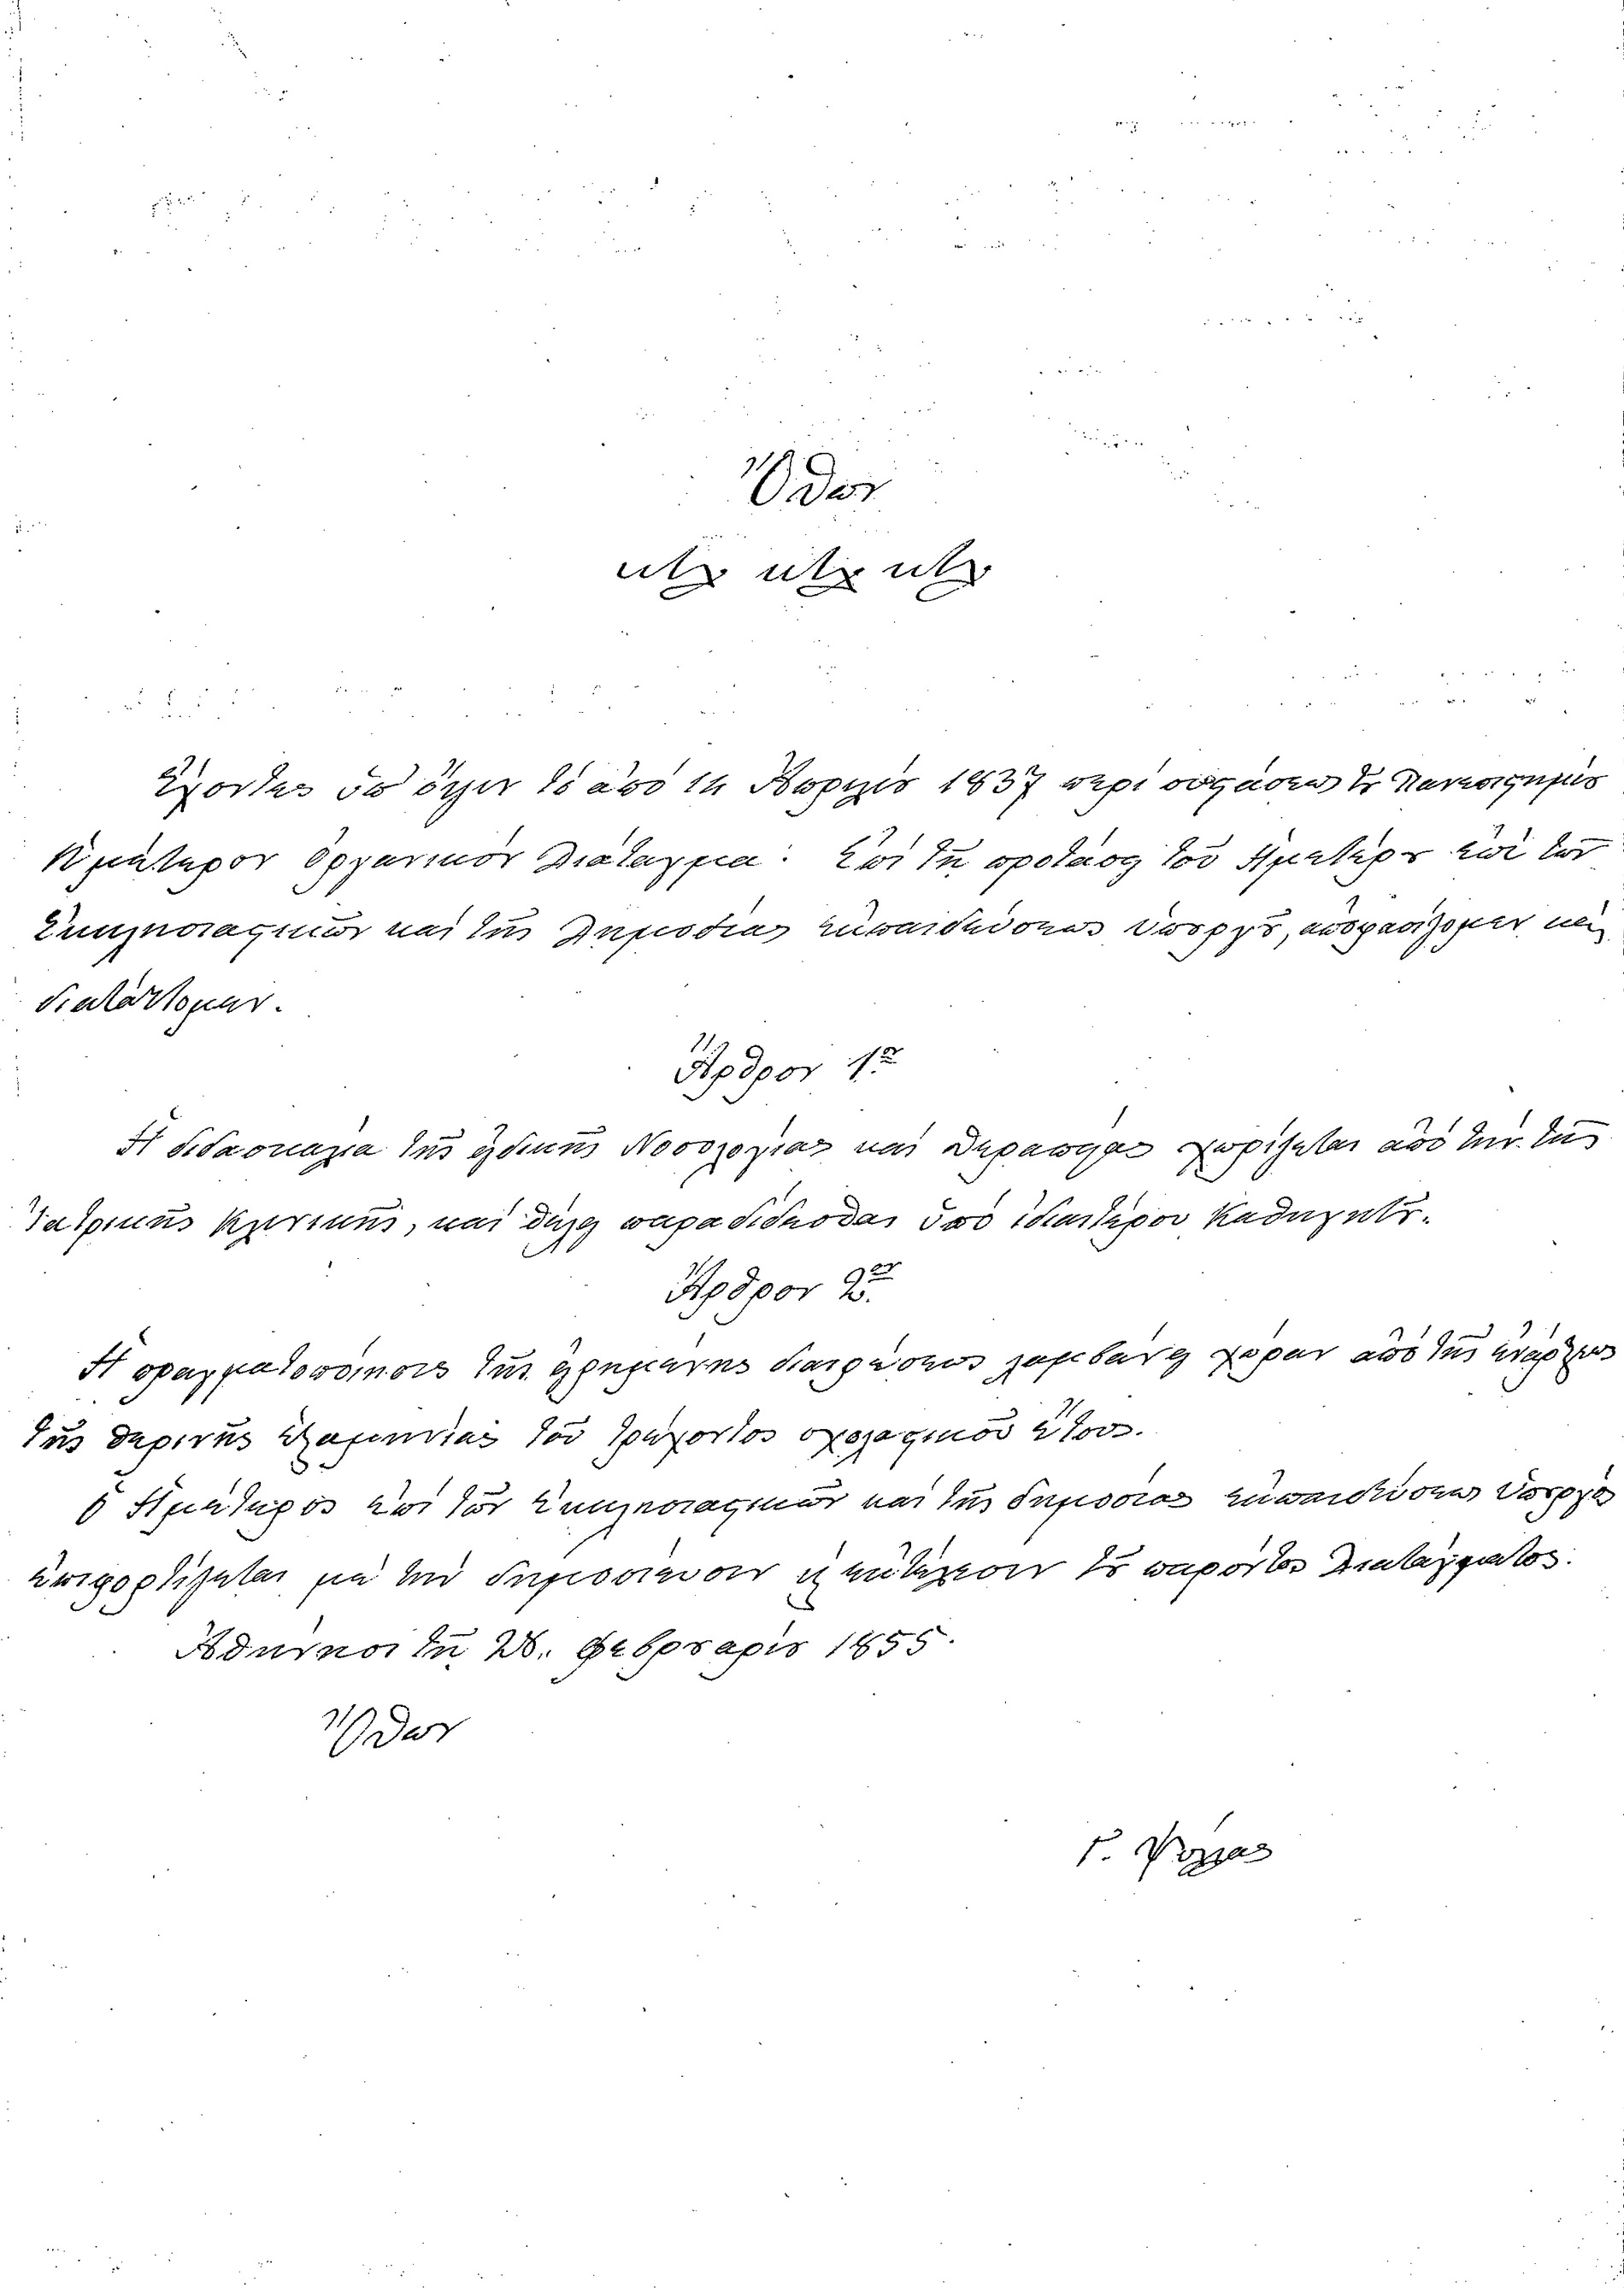 Ὄθων
κτλ κτλ κτλ
Ἔχοντες ὑπ' ὄψιν τὸ ἀπὸ 14 Ἀπριλίου 1837 περὶ συστάσεως τοῦ Πανεπιστημίου
Ἡμέτερον Ὀργανικὸν Διάταγμα· ἐπὶ τῇ προτάσει τοῦ Ἡμετέρου ἐπὶ τῶν
Ἐκκλησιαστικῶν καὶ τῆς Δημοσίας ἐκπαιδεύσεως Ὑπουργοῦ, ἀποφασίζομεν καὶ
διατάττομεν.
Ἄρθρον 1ον
Ἡ διδασκαλία τῆς εἰδικῆς Νοσολογίας καὶ Θεραπείας χωρίζεται ἀπὸ τὴν τῆς
Ἰατρικῆς Κλινικῆς, καὶ θέλει παραδίδεσθαι ὑπὸ ἰδιαιτέρου Καθηγητοῦ.
Ἄρθρον 2ον.
Ἡ πραγματοποίησις τῆς εἰρημένης διαιρέσεως λαμβάνει χώραν ἀπὸ τῆς ἐνάρξεως
τῆς θερινῆς ἑξαμηνίας τοῦ τρέχοντος σχολαστικοῦ ἔτους.
Ὁ Ἡμέτερος ἐπὶ τῶν Ἐκκλησιαστικῶν καὶ τῆς δημοσίας ἐκπαιδεύσεως Ὑπουργὸς
ἐπιφορτίζεται μὲ τὴν δημοσίευσιν καὶ ἐκτέλεσιν τοῦ παρόντος Διατάγματος.
Ἀθήνησι τῇ 26. Φεβρουαρίου 1855.
Ὄθων
Γ. Ψύλλας